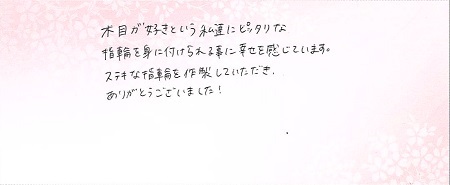 木目が好きという私達にピッタリな
指輪を身に付けられる事に幸せを感じています。
ステキな指輪を作製していただき、
ありがとうございました!